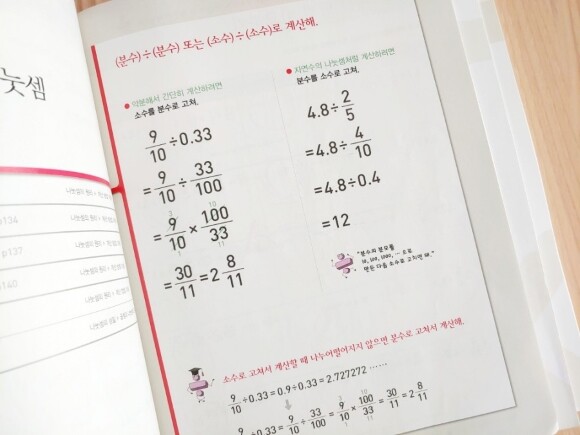 눗셈
p134
p137
(분수)÷(분수) 또는 (소수)÷(소수)로 계산해.
약분해서 간단히 계산하려면
소수를 분수로 고쳐.
9/10÷0.33
=9/10÷33/100
=9/10×100/33
3 10 1 11
=30/11=2 8/11
자연수의 나눗셈처럼 계산하려면
분수를 소수로 고쳐.
4.8÷2/5
=4.8÷4/10
=4.8÷0.4
=12
"분수의 분모를
10, 100, 1000, … 으로
만든 다음 소수로 고치면 돼."
소수로 고쳐서 계산할 때 나누어떨어지지 않으면 분수로 고쳐서 계산해.
9/10÷0.33=0.9÷0.33=2.727272……
9/10÷0.33=9/10÷33/100=9/10×100/33=30/11=2 8/11